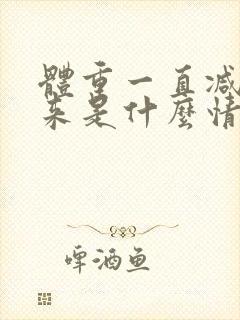 體重一直減
來是什麼情
啤酒鱼